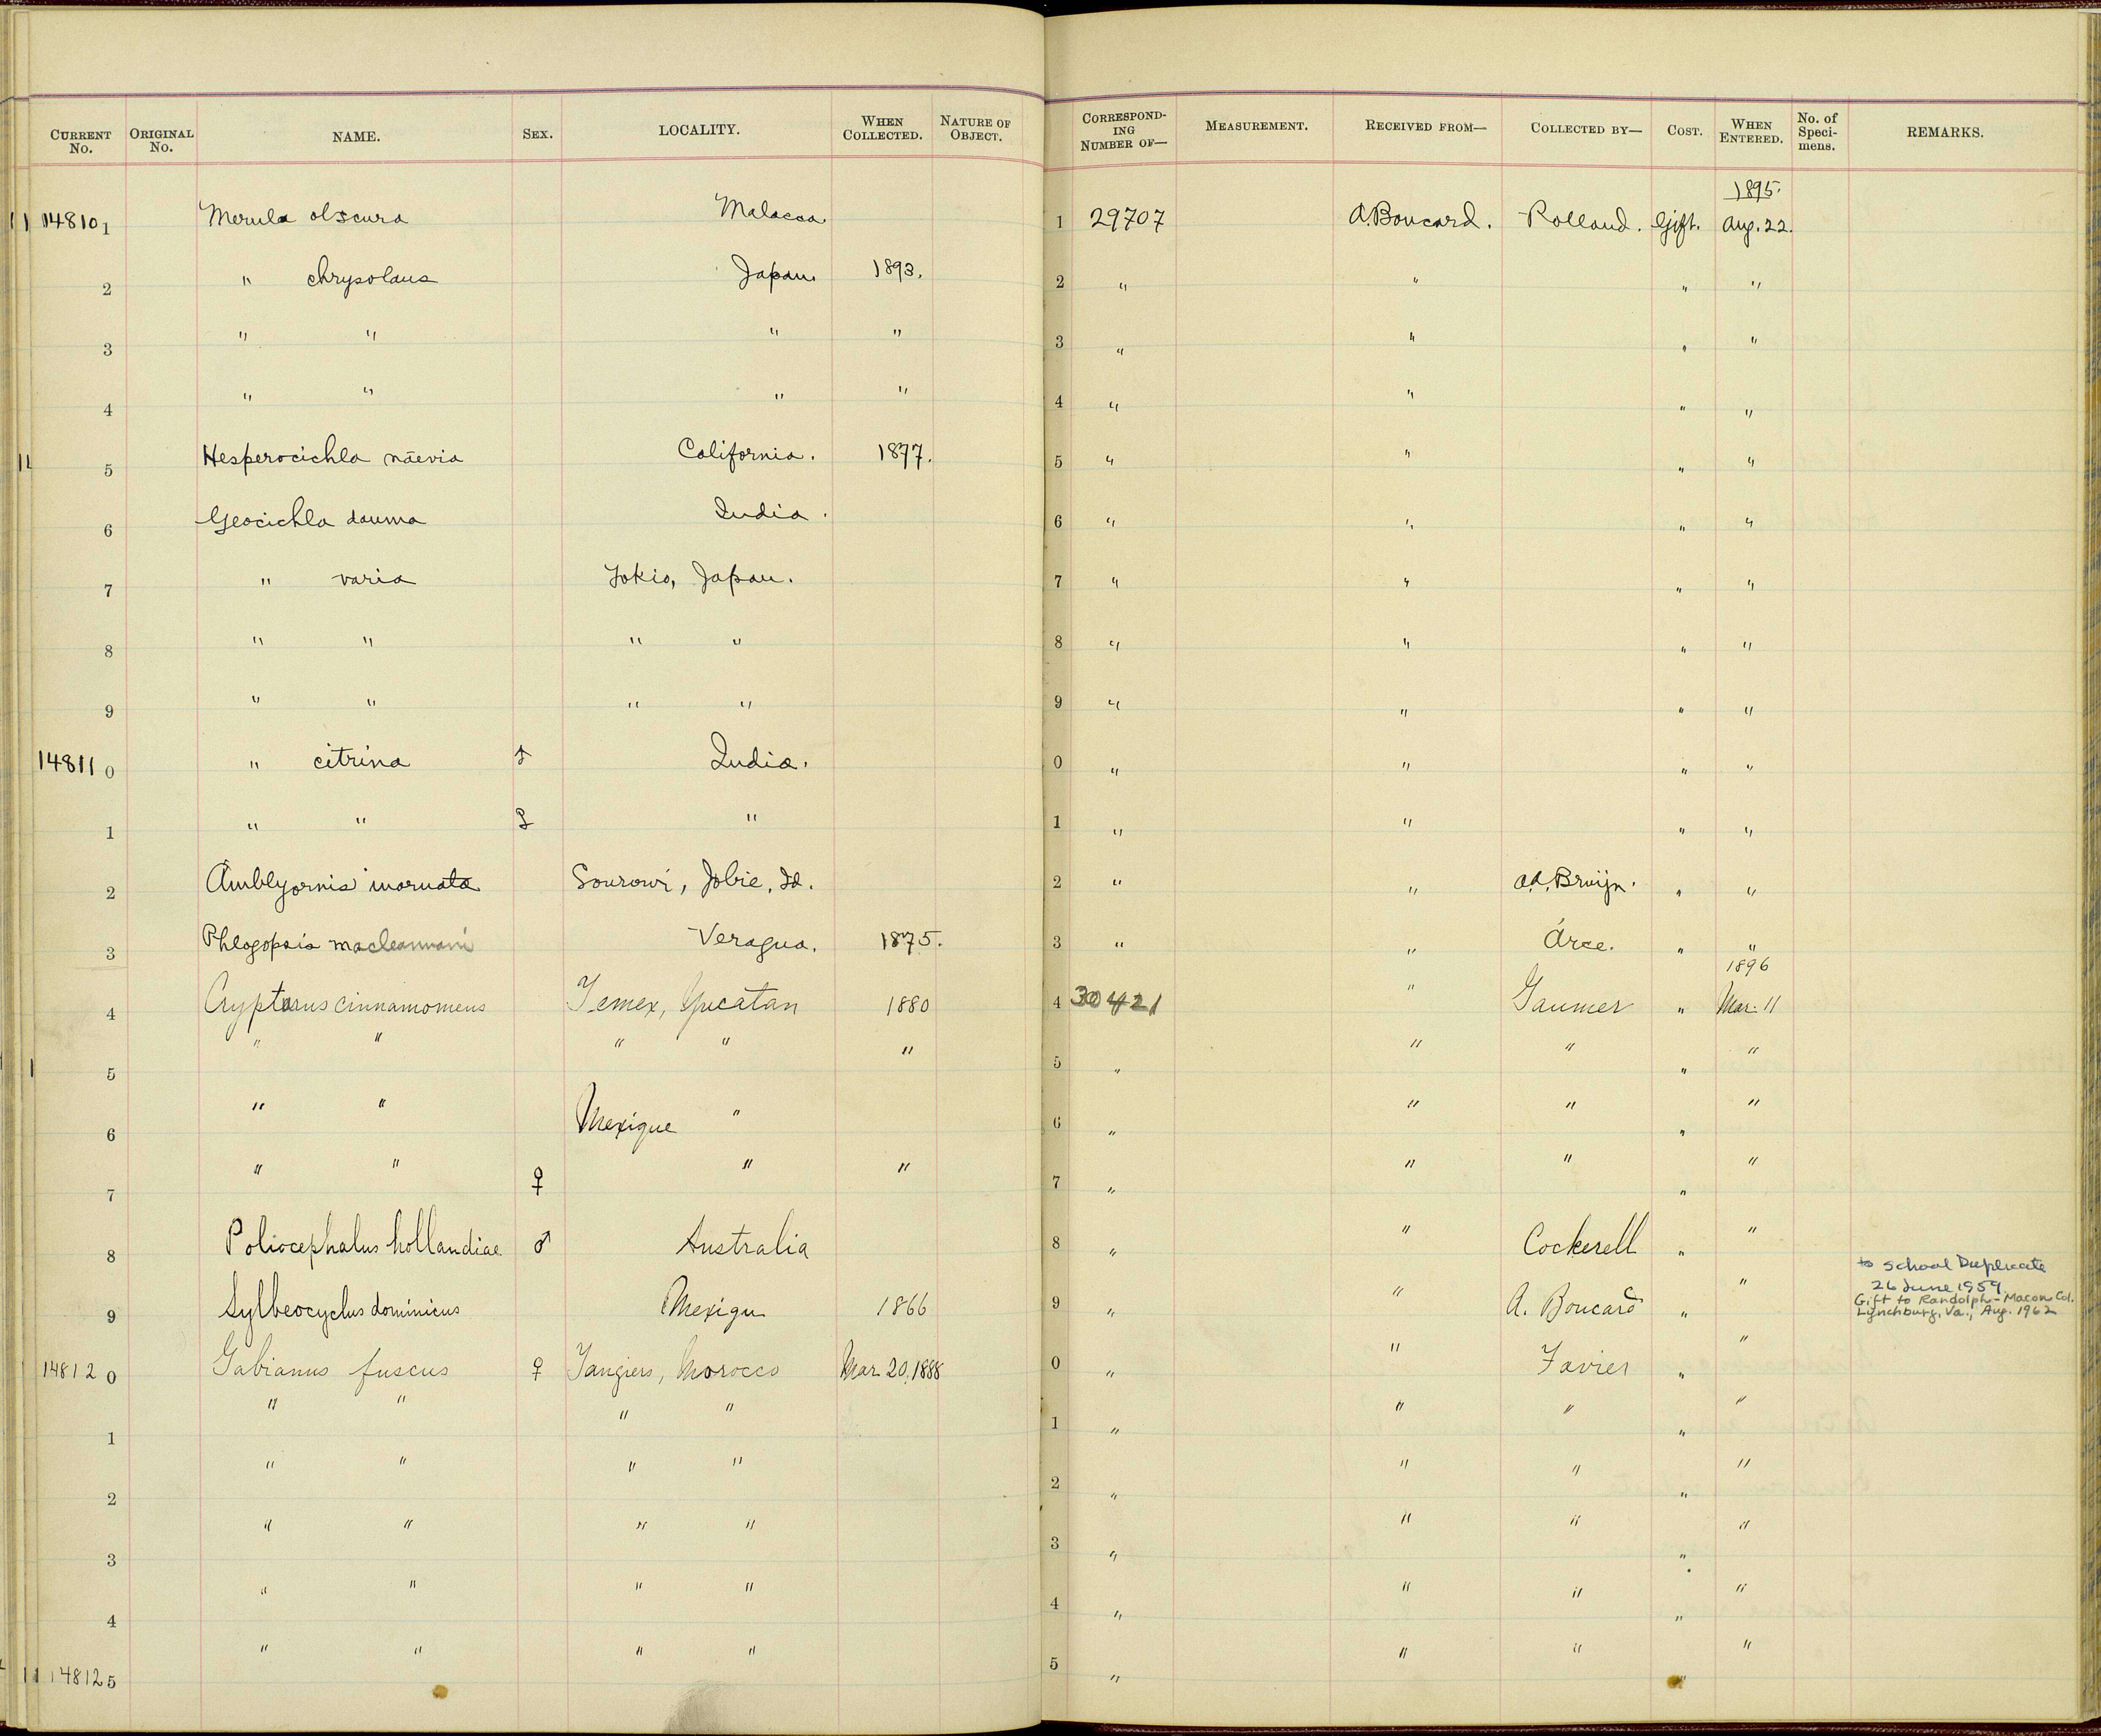 CURRENT No. ORIGINAL No. NAME. SEX. LOCALITY. WHEN COLLECTED. NATURE OF OBJECT. CORRESPOND-ING NUMBER OF— MEASUREMENT. RECEIVED FROM— COLLECTED BY— COST. WHEN ENTERED. No. of Speci-mens. REMARKS.
1895.
148101 Merula obscura Malacca 1 29707 A. Boucard. Rolland. Gift. Aug. 22.
2 " chrysolaus Japan 1893. 2 " " " "
3 " " " " 3 " " " "
4 " " " " 4 " " " "
5 Hesperocichla naevia California. 1877. 5 " " " "
6 Geocichla dauma India. 6 " " " "
7 " varia Tokio, Japan. 7 " " " "
8 " " " " 8 " " " "
9 " " " " 9 " " " "
148110 " citrina ♂ India. 0 " " " "
1 " " ♀ " 1 " " " "
2 Amblyornis inornata Sourowi, Jobie, Id. 2 " " Bruijn. " "
3 Phlogopsis macleannani Veragua. 1875. 3 " " Arce. " "
1896
4 Crypturus cinnamomeus Temex, Yucatan 1880 4 30421 " Gaumer " Mar. 11
5 " " " " " 5 " " " " "
6 " " Mexique " 6 " " " " "
7 " " ♀ " " 7 " " " " "
8 Poliocephalus hollandiae ♂ Australia 8 " " Cockerell " "
to School Duplicate
26 June 1959
9 Sylbeocyclus dominicus Mexiqu 1866 9 " " A. Boucard " " Gift to Randolph-Macon Col.
Lynchburg, Va., Aug. 1962
148120 Gabianus fuscus ♀ Tangiers, Morocco Mar. 20, 1888 0 " " Favier " "
1 " " " " 1 " " " " "
2 " " " " 2 " " " " "
3 " " " " 3 " " " " "
4 " " " " 4 " " " " "
148125 " " " " 5 " " " " "